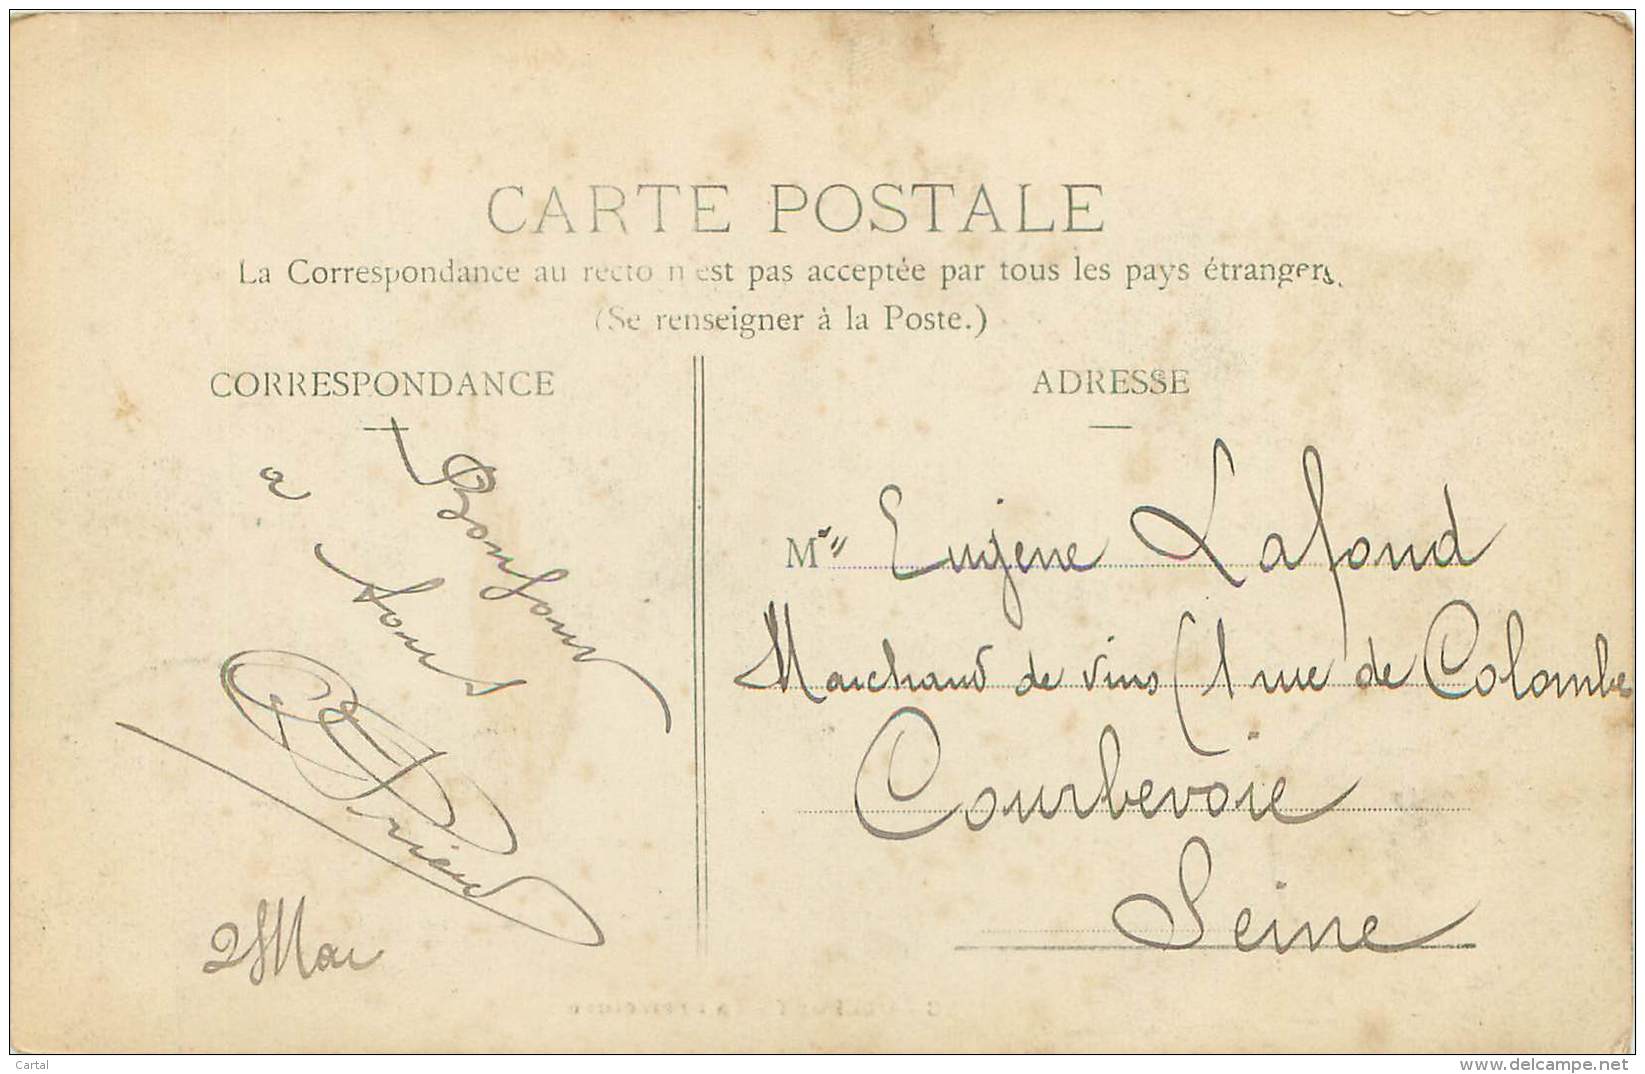 CARTE POSTALE
La Correspondance au recto n'est pas acceptée par tous les pays étrangers.
(Se renseigner à la Poste.)
CORRESPONDANCE
Bonjour
a tous
2 Mai
ADRESSE
M Eugene Lafond
Marchand de vins (1 rue de Colombe
Courbevoie
Seine
Cartal
www.delcampe.net